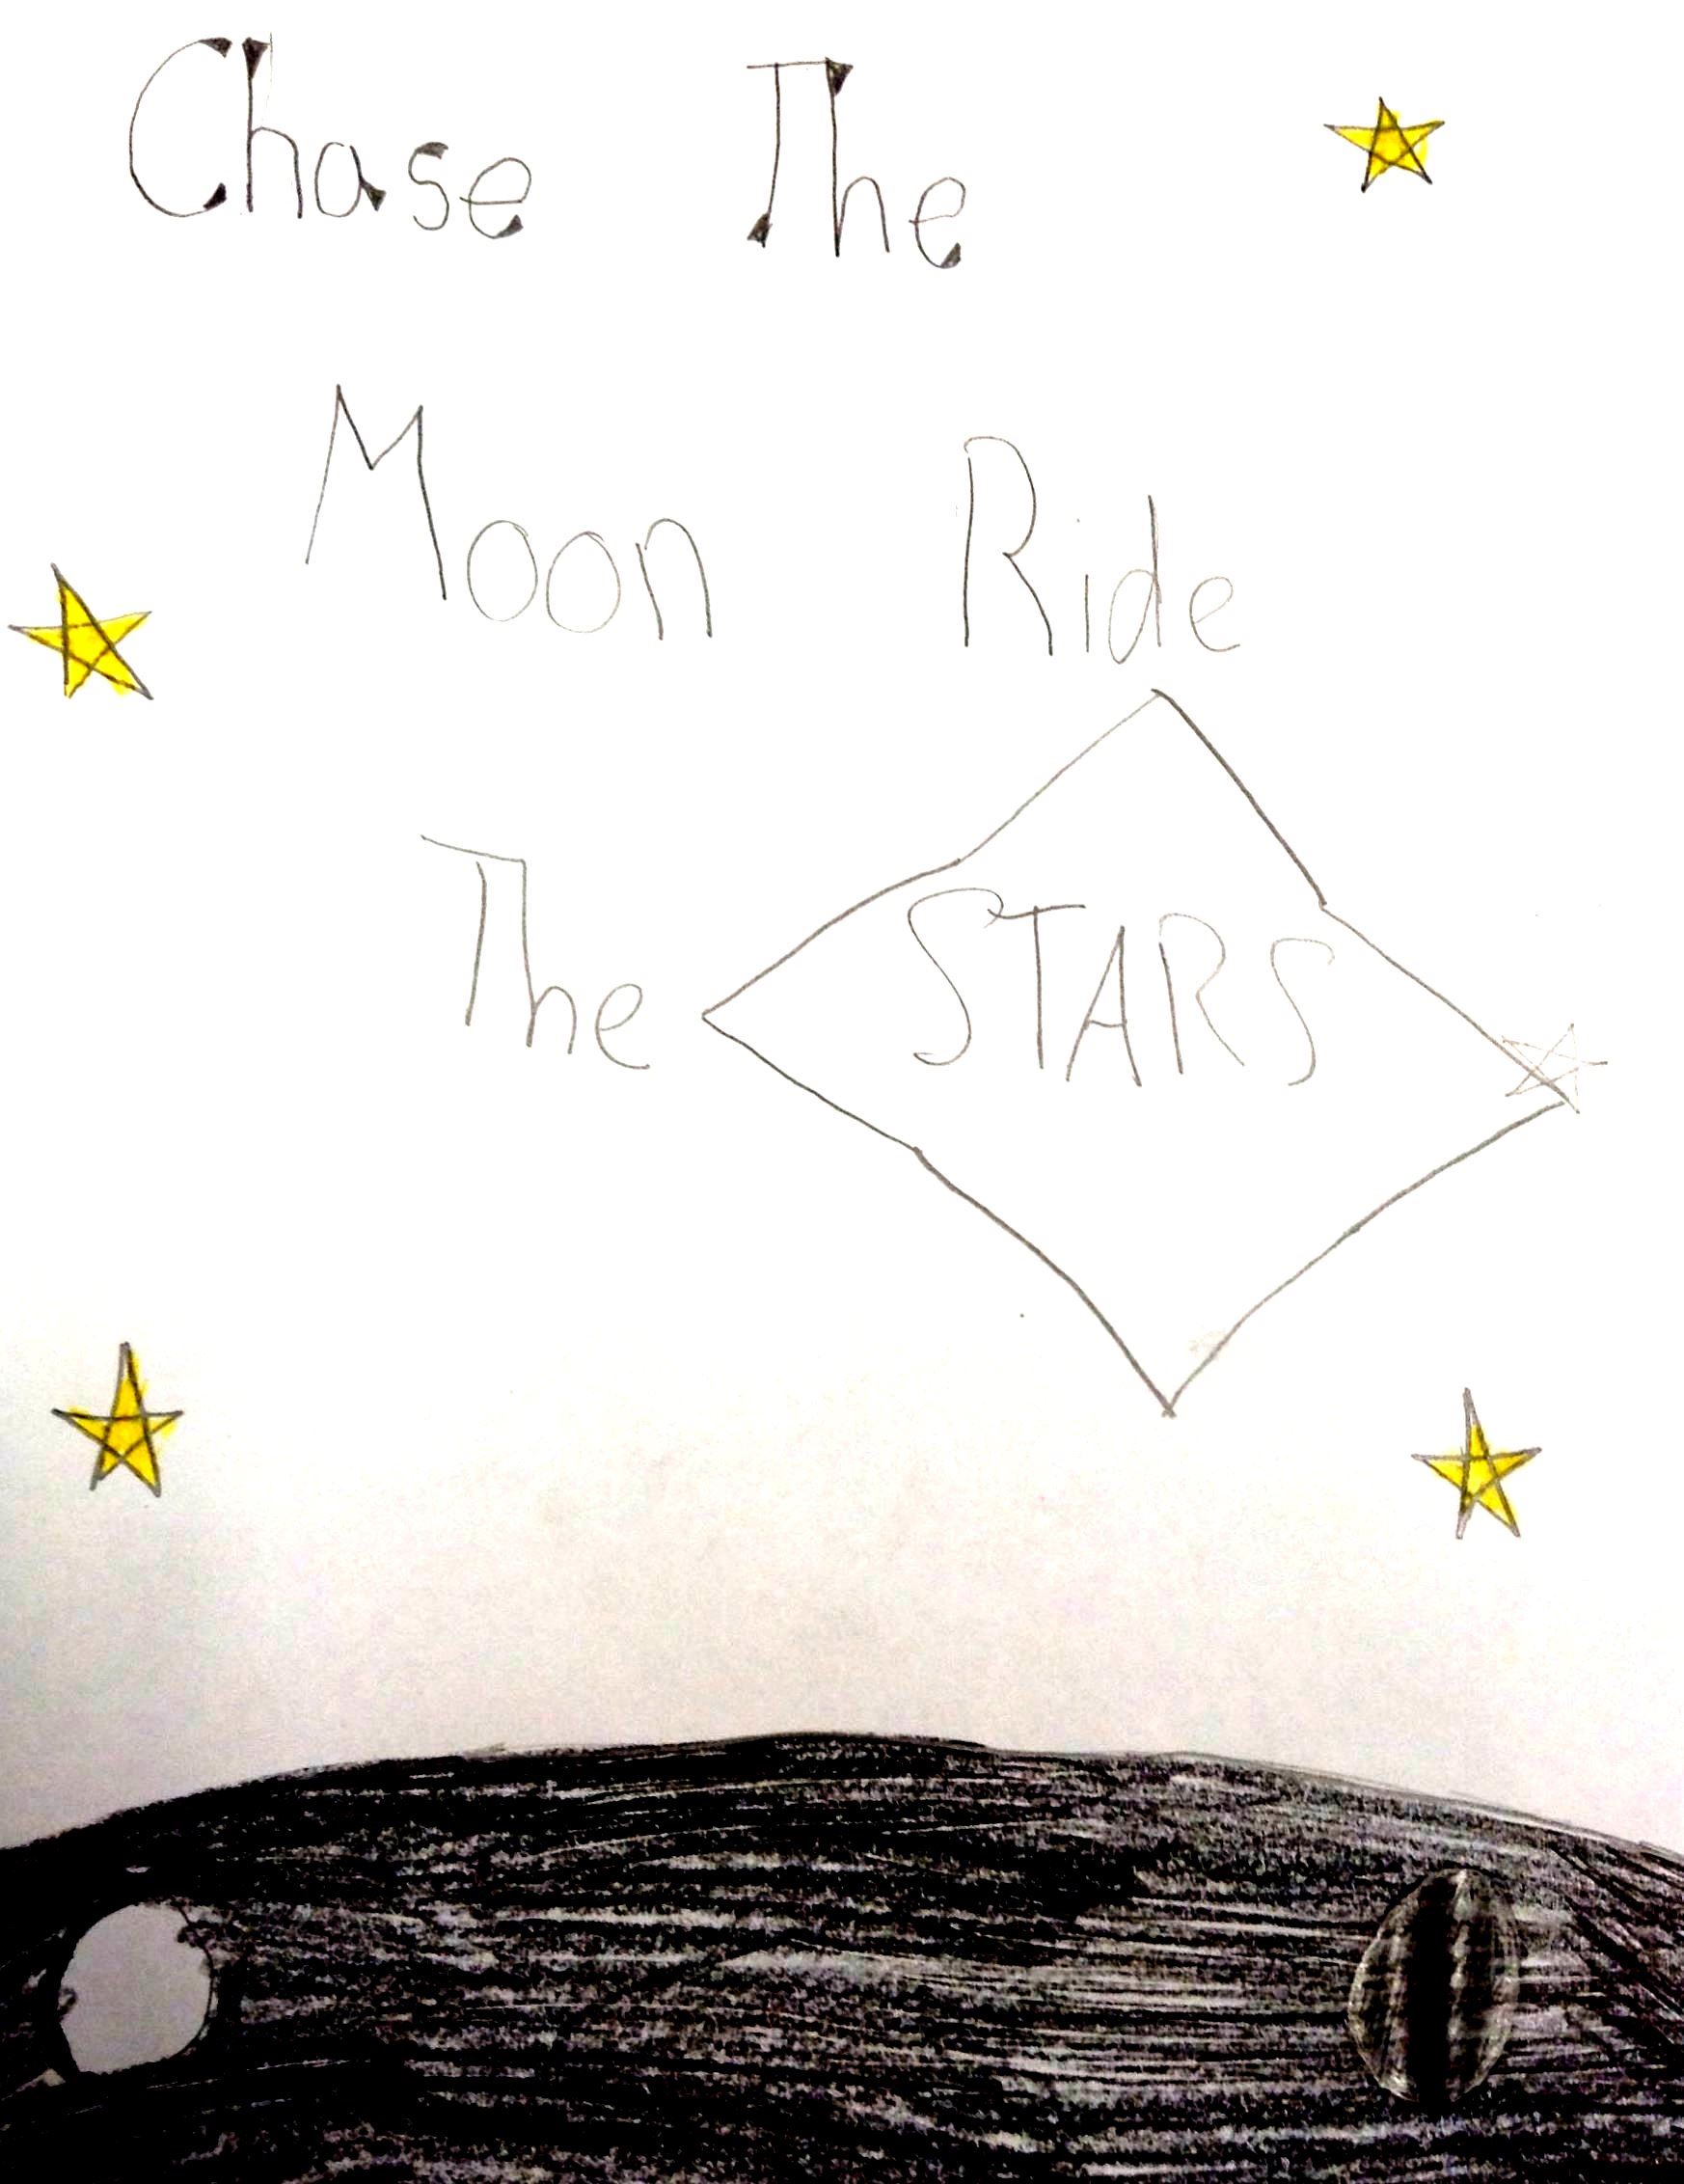 Chase The
Moon Ride
The STARS